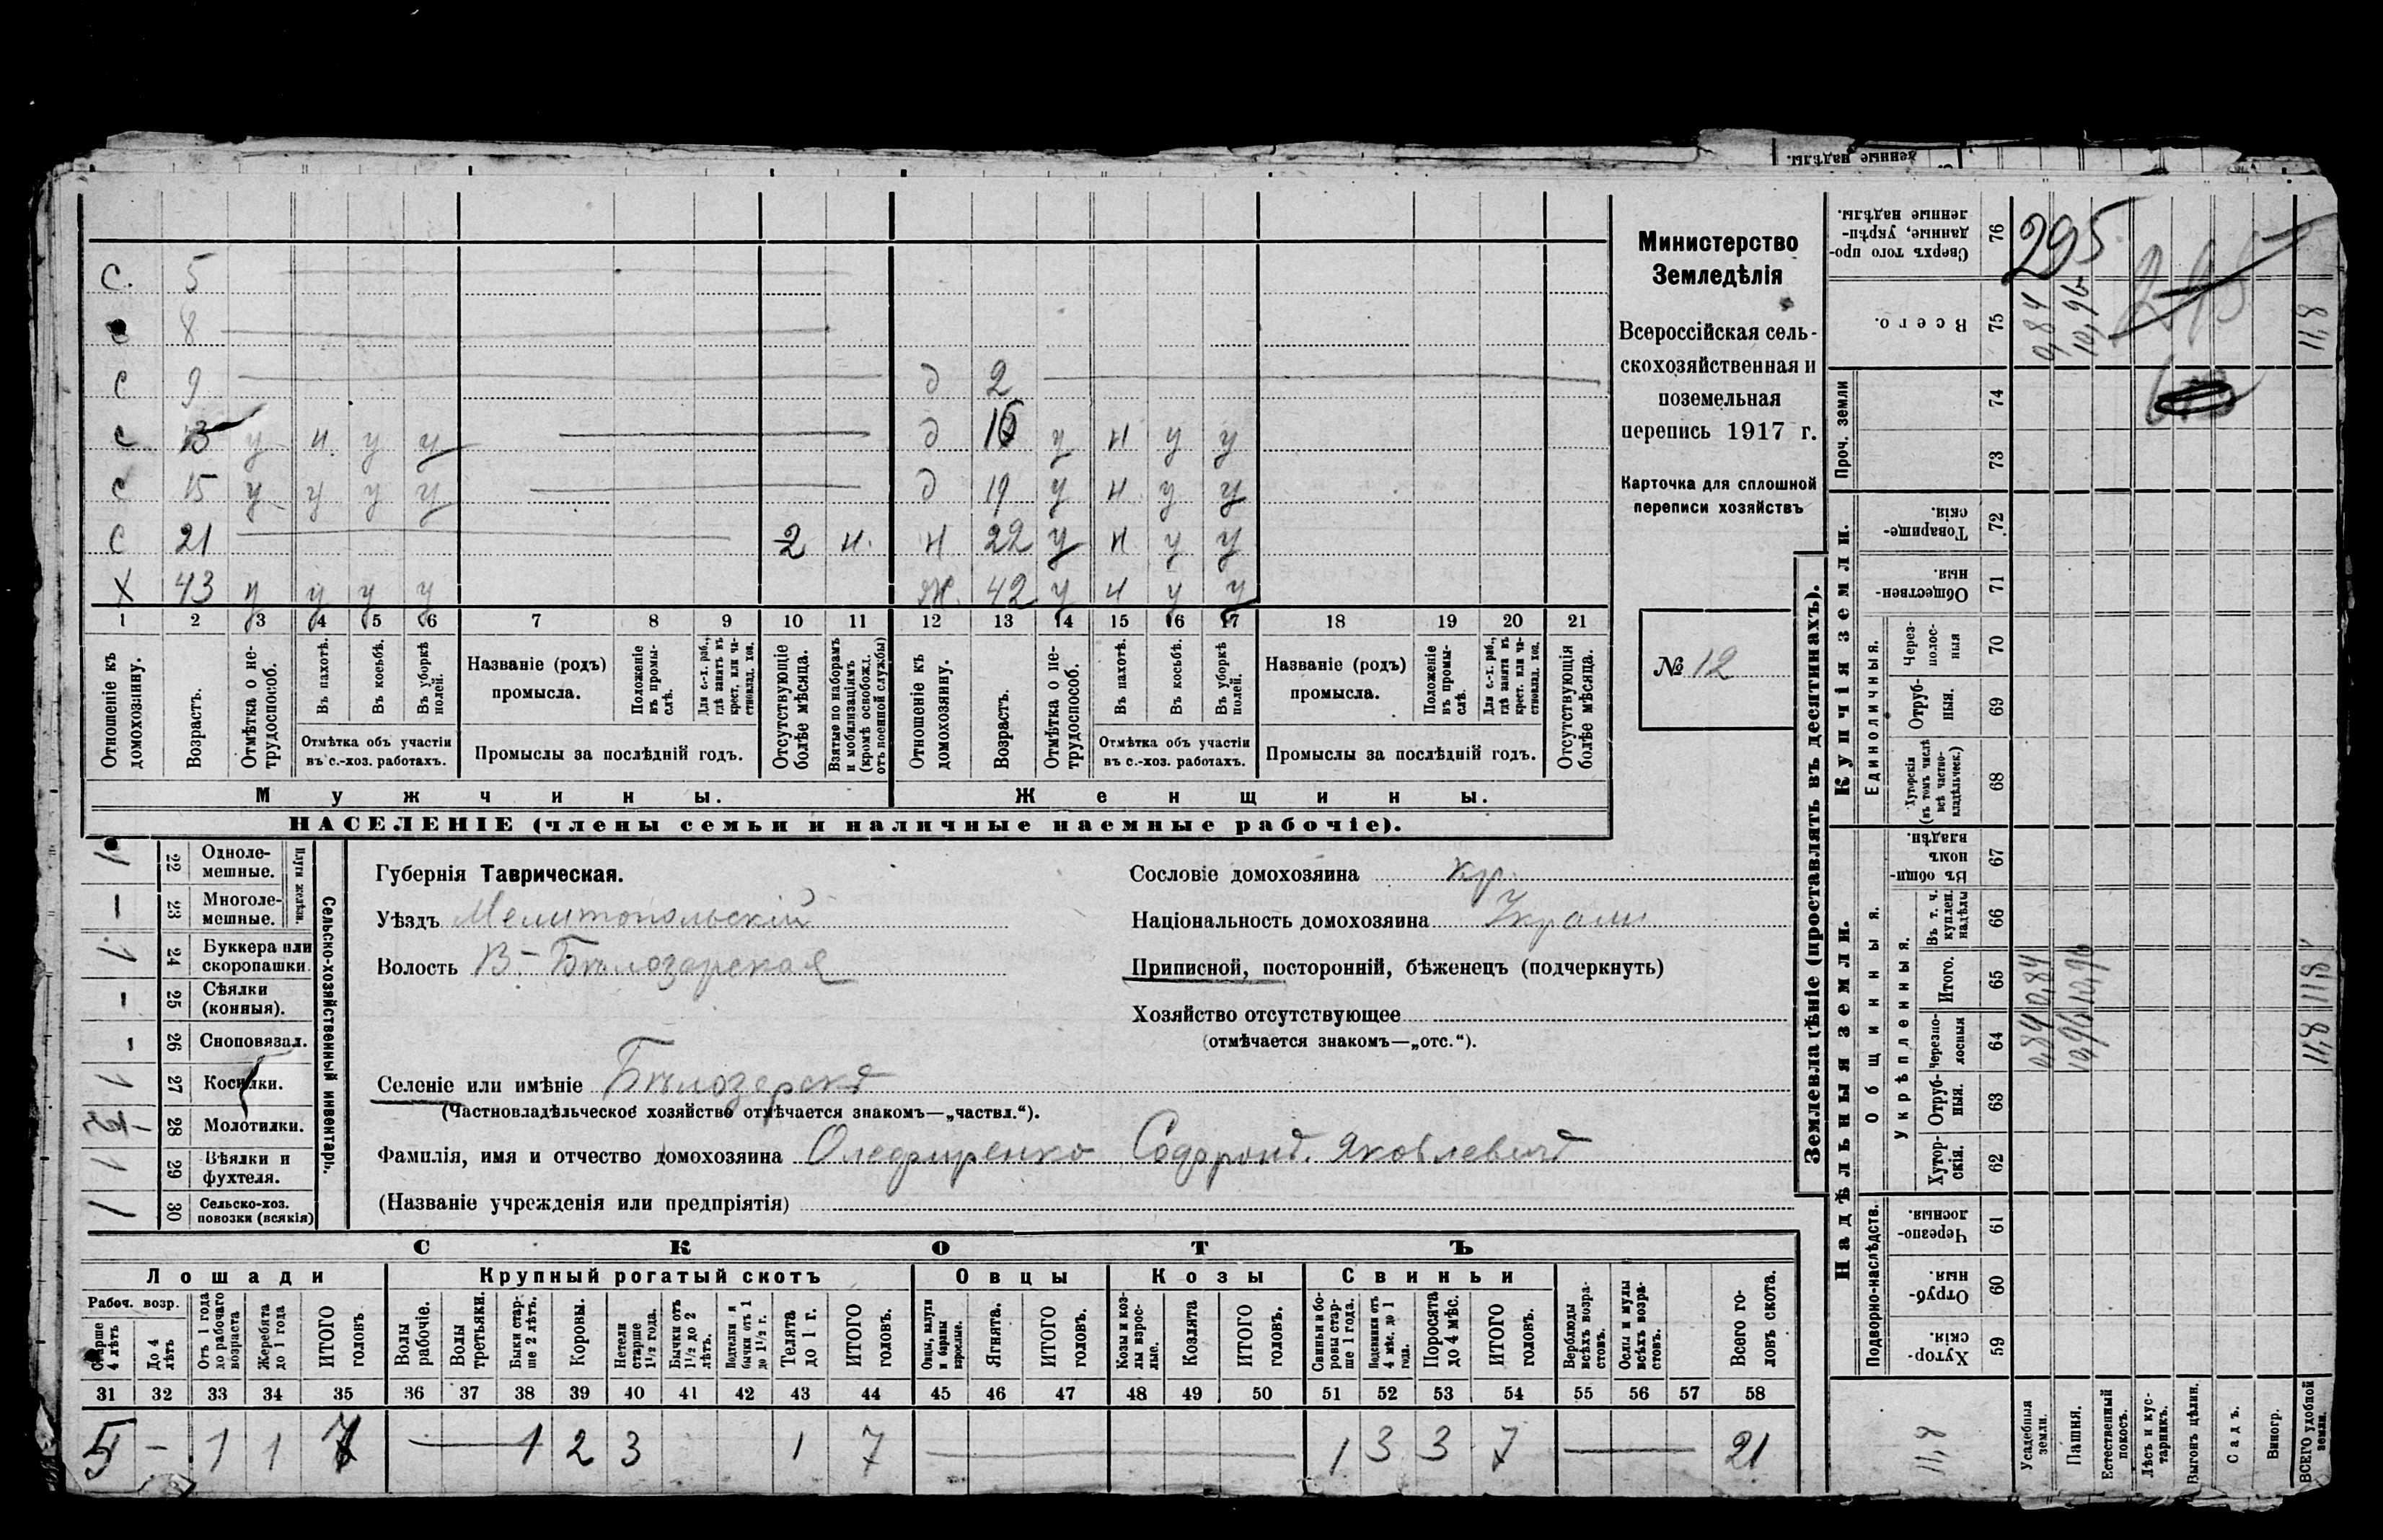 денные надѣлы.
С. 5
с 8
с 9 д 2
с 13 у н у у д 16 у н у у
с 15 у у у у д 19 у н у у
с 21 2 н. н 22 у н у у
х 43 у у у у ж. 42 у н у у
1 2 3 4 5 6 7 8 9 10 11 12 13 14 15 16 17 18 19 20 21
Отношеніе къ домохозяину.
Возрастъ.
Отмѣтка о нетрудоспособ.
Въ пахотѣ.
Въ косьбѣ.
Въ уборкѣ полей.
Отмѣтка объ участіи
въ с.-хоз. работахъ.
Названіе (родъ)
промысла.
Положеніе въ промыслѣ.
Для с.-х. раб., гдѣ занятъ въ крест. или частновлад. хоз.
Промыслы за послѣдній годъ.
Отсутствующіе болѣе мѣсяца.
Взятые по наборамъ и мобилизаціямъ (кромѣ освобожд. отъ военной службы)
Отношеніе къ домохозяину.
Возрастъ.
Отмѣтка о нетрудоспособ.
Въ пахотѣ.
Въ косьбѣ.
Въ уборкѣ полей.
Отмѣтка объ участіи
въ с.-хоз. работахъ.
Названіе (родъ)
промысла.
Положеніе въ промыслѣ.
Для с.-х. раб., гдѣ занята въ крест. или частновлад. хоз.
Промыслы за послѣдній годъ.
Отсутствующія болѣе мѣсяца.
Мужчины. Женщины.
НАСЕЛЕНІЕ (члены семьи и наличные наемные рабочіе).
Министерство
Земледѣлія
Всероссійская сель-
скохозяйственная и
поземельная
перепись 1917 г.
Карточка для сплошной
переписи хозяйствъ
№ 12
1 22 Одноле-
мешные.
— 23 Многоле-
мешные.
Плуги желѣзн.
1 24 Буккера или
скоропашки.
– 25 Сѣялки
(конныя).
- 26 Сноповязал.
1 27 Косилки.
28 Молотилки.
1 29 Вѣялки и
фухтеля.
1 30 Сельско-хоз.
повозки (всякія)
Сельско-хозяйственный инвентарь.
Губернія Таврическая.
Уѣздъ Мелитопольскій
Волость В.-Бѣлозарская
Селеніе или имѣніе Бѣлозерка
(Частновладѣльческое хозяйство отмѣчается знакомъ—„частвл.“).
Фамилія, имя и отчество домохозяина Олефиренко Софронъ Яковлевичъ
(Названіе учрежденія или предпріятія)
Сословіе домохозяина кр.
Національность домохозяина Украин
Приписной, посторонній, бѣженецъ (подчеркнуть)
Хозяйство отсутствующее
(отмѣчается знакомъ—„отс.“).
СКОТЪ
Лошади Крупный рогатый скотъ Овцы Козы Свиньи
Рабоч. возр.
Старше 4 лѣтъ
До 4 лѣтъ
Отъ 1 года до рабочаго возраста
Жеребята до 1 года
ИТОГО головъ
Волы рабочіе.
Волы третьяки.
Быки старше 2 лѣтъ.
Коровы.
Нетели старше 1½ года.
Бычки отъ 1½ до 2 лѣтъ.
Подтелки и бычки отъ 1 до 1½ г.
Телята до 1 г.
ИТОГО головъ.
Овцы, валухи и бараны взрослые.
Ягнята.
ИТОГО головъ.
Козы и козлы взрослые.
Козлята
ИТОГО головъ.
Свиньи и боровы старше 1 года.
Подсвинки отъ 4 мѣс. до 1 года.
Поросята до 4 мѣс.
ИТОГО головъ.
Верблюды всѣхъ возрастовъ.
Ослы и мулы всѣхъ возрастовъ.
Всего головъ скота.
31 32 33 34 35 36 37 38 39 40 41 42 43 44 45 46 47 48 49 50 51 52 53 54 55 56 57 58
5 – 1 1 7 — 1 2 3 1 7 — 1 3 3 7 — 21
Землевладѣніе (проставлять въ десятинахъ).
Сверхъ того проданные, укрѣпленные надѣлы. 76 295
Всего. 75 0,84 10,96 11,8
Проч. земли 74
73
Купчія земли.
Товарищескія. 72
Общественныя. 71
Единоличныя.
Черезполосныя 70
Отрубныя. 69
Хуторскія (въ томъ числѣ всѣ частновладѣльческ.) 68
Надѣльныя земли.
Общинныя.
Въ общинномъ владѣн. 67
Укрѣпленныя.
Въ т. ч. куплен. надѣлы 66
Итого. 65 0,84 10,96 11,8
Черезполосныя 64 0,84 10,96 11,8
Отрубныя. 63
Хуторскія. 62
Подворно-наслѣдств.
Черезполосныя. 61
Отрубныя. 60
Хуторскія. 59
11,8
Усадебныя земли.
Пашня.
Естественный покосъ.
Лѣсъ и кустарникъ.
Выгонъ цѣлин.
Садъ.
Виногр.
ВСЕГО удобной земли.